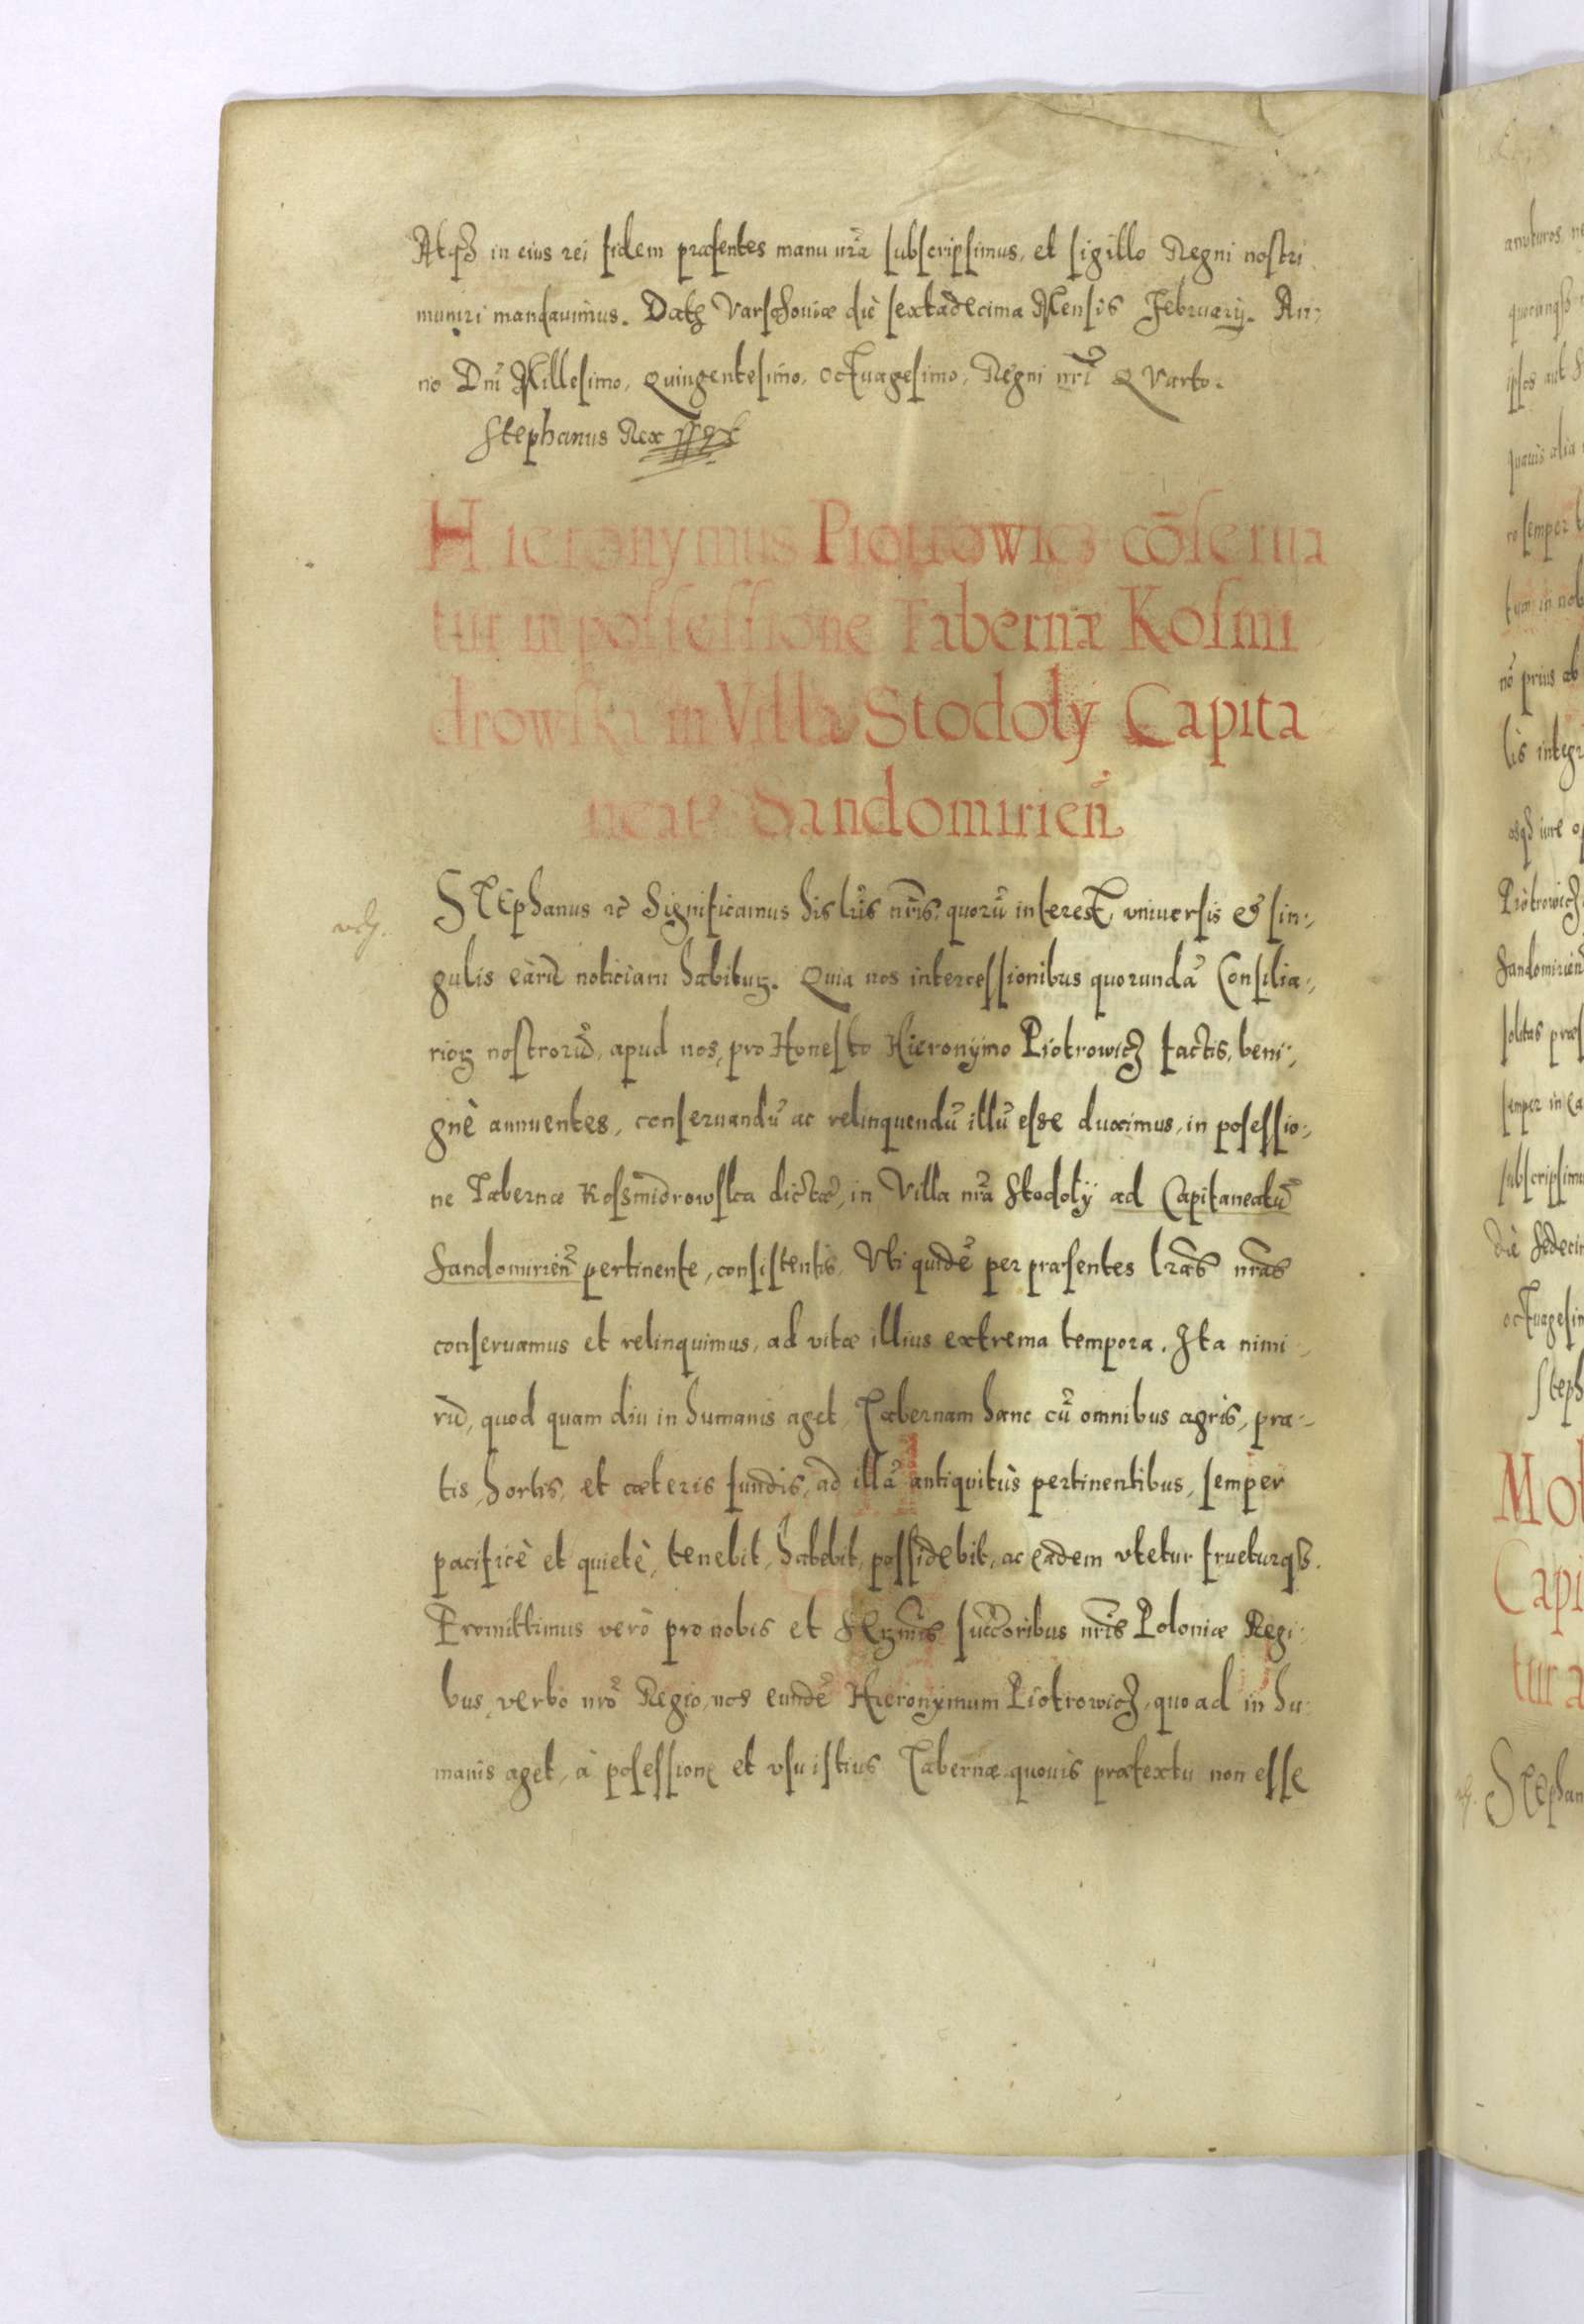 Atqȝ in eius rei fidem præsentes manu nr̃a subscripsimus, et sigillo Regni nostri
muniri mandauimus. Datȝ Varschouiæ die sextadecima Mensis February. An:
no Dnĩ Millesimo, Quingentesimo, Octuagesimo, Regni nrĩ Quarto.
Stephanus Rex
Hieronymus Piotrowicz cõserua
tur in possessione Tabernæ Kosmi
drowska in Villa Stodoły Capita
neatꝰ Sandomirień
STEphanus rc̃ Significamus his lr̃is nr̃is, quorũ interest, vniuersis et sin:
gulis earũ noticiam habituȝ. Quia nos intercessionibus quorundã Consilia:
rioȝ nostrorũ, apud nos, pro Honesto Hieronymo Piotrowicz factis, beni:
gnè annuentes, conseruandũ ac relinquendũ illũ esse duximus, in posessio:
ne Tabernæ Kossmidrowska dictæ, in Villa nr̃a Stodoły ad Capitaneatũ
Sandomirień pertinente, consistentis, Vti quidẽ per præsentes lr̃as nr̃as
conseruamus et relinquimus, ad vitæ illius extrema tempora. Ita nimi
rũ, quod quam diu in humanis aget Tabernam hanc cũ omnibus agris, pra:
tis, hortis, et cæteris fundis, ad illã antiquitùs pertinentibus, semper
pacificè et quietè, tenebit, habebit, possidebit, ac eadem vtetur frueturqȝ.
Promittimus verò pro nobis et Serȝmis succ̃oribus nr̃is Poloniæ Regi:
bus, verbo nrõ Regio, nos eundẽ Hieronymum Piotrowicz, quo ad in hu
manis aget, à posessione et vsu istius Tabernæ quouis prætextu non esse